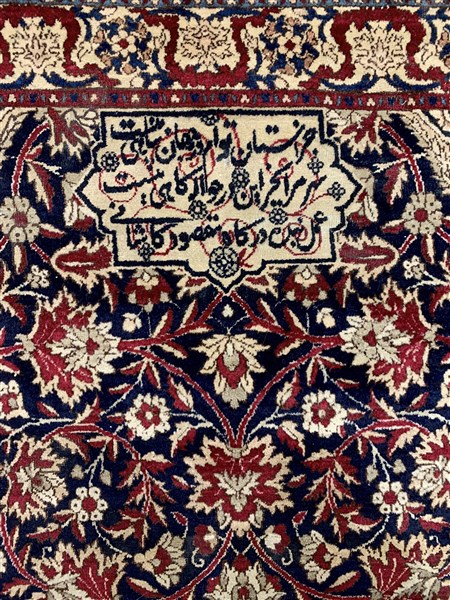 جز استان توام در جهان پناهی نیست
سر مرا بجز این در حواله کاهی نیست
عمل بنده درکاه مقصود کاشانی